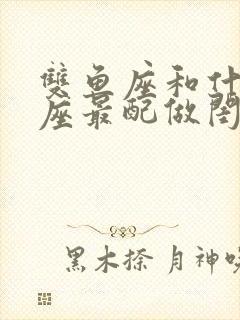 雙鱼座和什
座最配做閨
黑木捺 月神